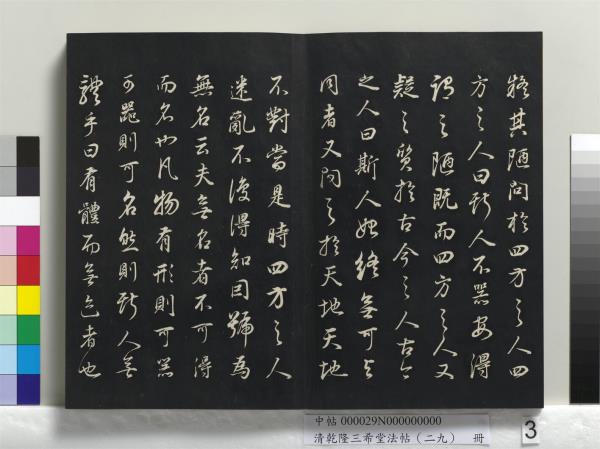 將其陋問於四方之人四
方之人曰斯人不器安得
謂之陋既而四方之人又
疑之質於古今之人古今
之人曰斯人始終無可與
同者又問之於天地天地
不對當是時四方之人
迷亂不復得知因號為
無名公夫無名者不可得
而名也凡物有形則可器
可器則可名然則斯人無
體乎曰有體而無迹者也
中帖 000029N000000000
清乾隆三希堂法帖（二九） 冊
3